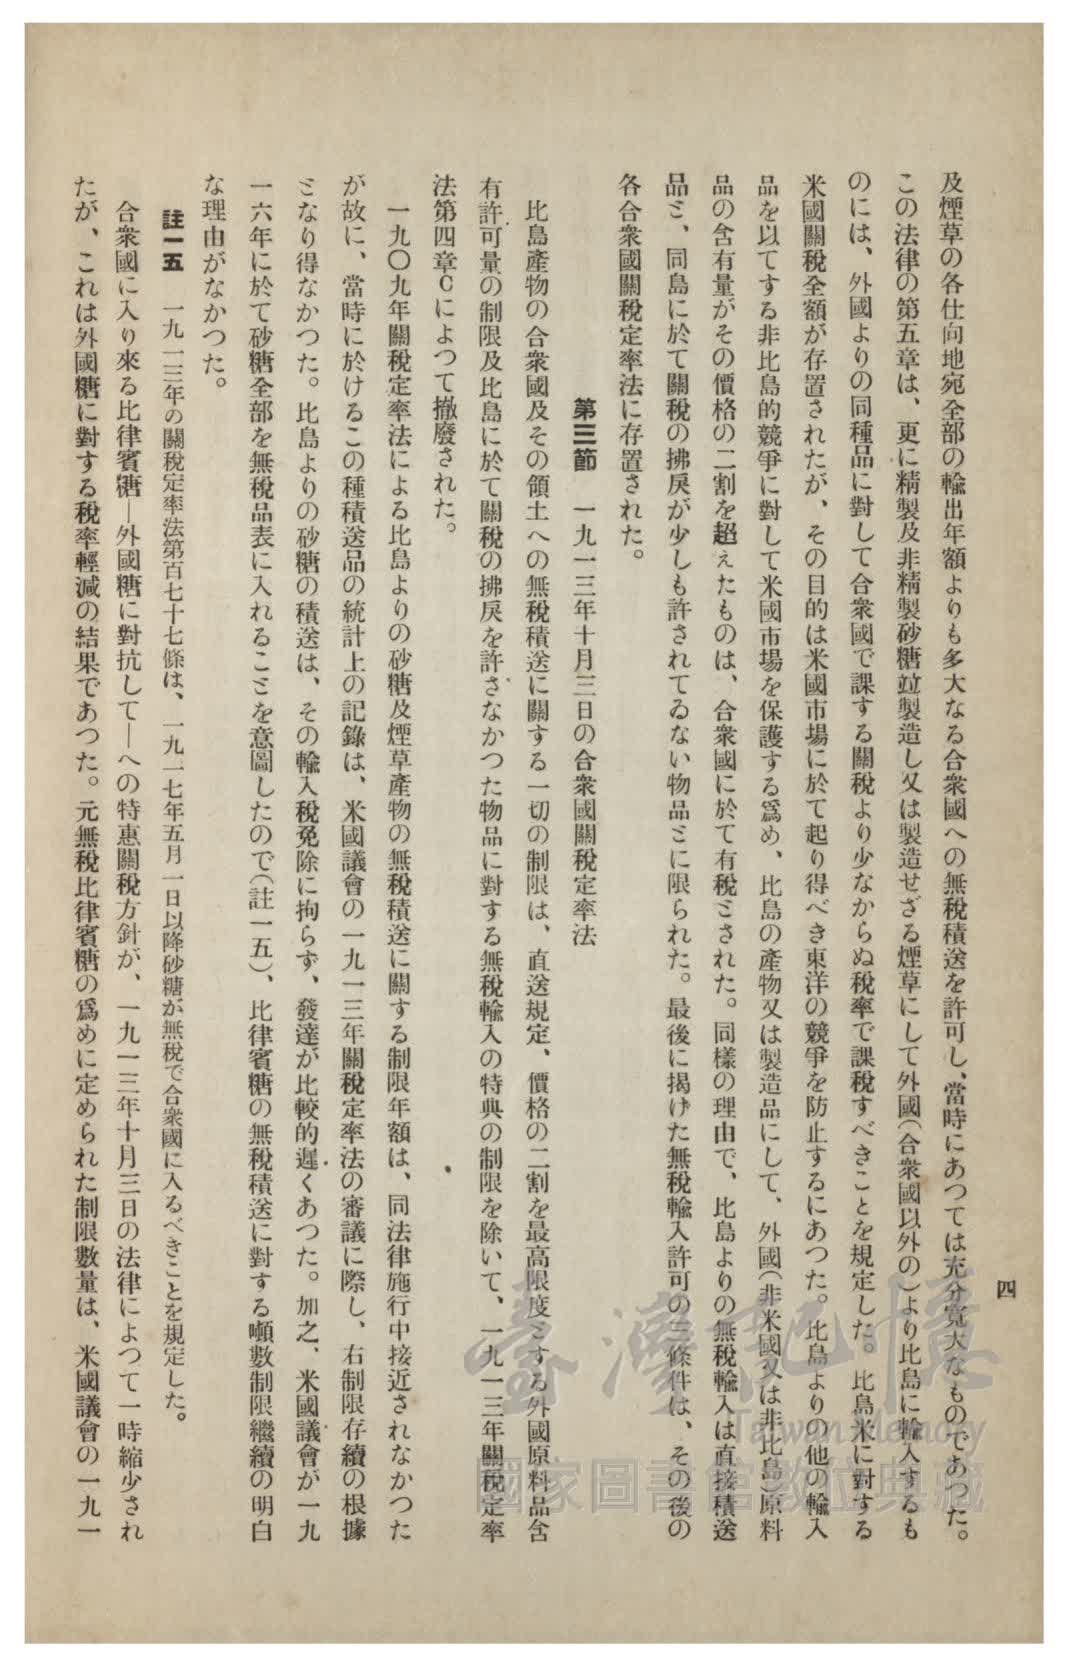 四
及煙草の各仕向地宛全部の輸出年額よりも多大なる合衆國への無稅積送を許可し、當時にあつては充分寬大なものであつた。
この法律の第五章は、更に精製及非精製砂糖竝製造し又は製造せざる煙草にして外國(合衆國以外の)より比島に輸入するも
のには、外國よりの同種品に對して合衆國で課する關稅より少なからぬ稅率で課稅すべきことを規定した。比島米に對する
米國關稅全額が存置されたが、その目的は米國市場に於て起り得べき東洋の競爭を防止するにあつた。比島よりの他の輸入
品を以てする非比島的競爭に對して米國市場を保護する爲め、比島の產物又は製造品にして、外國(非米國又は非比島)原料
品の含有量がその價格の二割を超えたものは、合衆國に於て有稅とされた。同樣の理由で、比島よりの無稅輸入は直接積送
品と、同島に於て關稅の拂戾が少しも許されてゐない物品とに限られた。最後に揭げた無稅輸入許可の三條件は、その後の
各合衆國關稅定率法に存置された。
第三節 一九一三年十月三日の合衆國關稅定率法
比島產物の合衆國及その領土への無稅積送に關する一切の制限は、直送規定、價格の二割を最高限度とする外國原料品含
有許可量の制限及比島に於て關稅の拂戾を許さなかつた物品に對する無稅輸入の特典の制限を除いて、一九一三年關稅定率
法第四章Cによつて撤廢された。
一九〇九年關稅定率法による比島よりの砂糖及煙草產物の無稅積送に關する制限年額は、同法律施行中接近されなかつた
が故に、當時に於けるこの種積送品の統計上の記錄は、米國議會の一九一三年關稅定率法の審議に際し、右制限存續の根據
となり得なかつた。比島よりの砂糖の積送は、その輸入稅免除に拘らず、發達が比較的遲くあつた。加之、米國議會が一九
一六年に於て砂糖全部を無稅品表に入れることを意圖したので(註一五)、比律賓糖の無稅積送に對する噸數制限繼續の明白
な理由がなかつた。
註一五 一九一三年の關稅定率法第百七十七條は、一九一七年五月一日以降砂糖が無稅で合衆國に入るべきことを規定した。
合衆國に入り來る比律賓糖—外國糖に對抗して—への特惠關稅方針が、一九一三年十月三日の法律によつて一時縮少され
たが、これは外國糖に對する稅率輕減の結果であつた。元無稅比律賓糖の爲めに定められた制限數量は、米國議會の一九一
臺灣記憶
Taiwan Memory
國家圖書館數位典藏